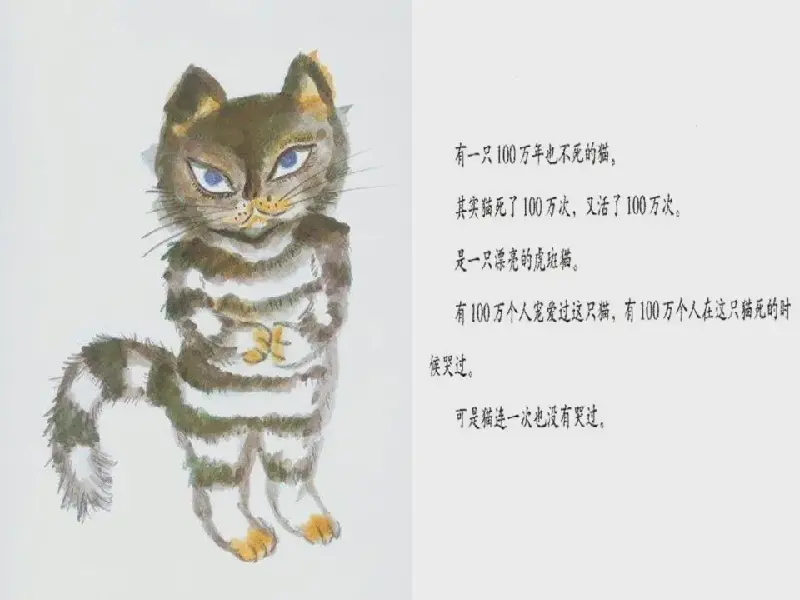 有一只100万年也不死的猫。
其实猫死了100万次，又活了100万次。
是一只漂亮的虎斑猫。
有100万个人宠爱过这只猫，有100万个人在这只猫死的时
候哭过。
可是猫连一次也没有哭过。